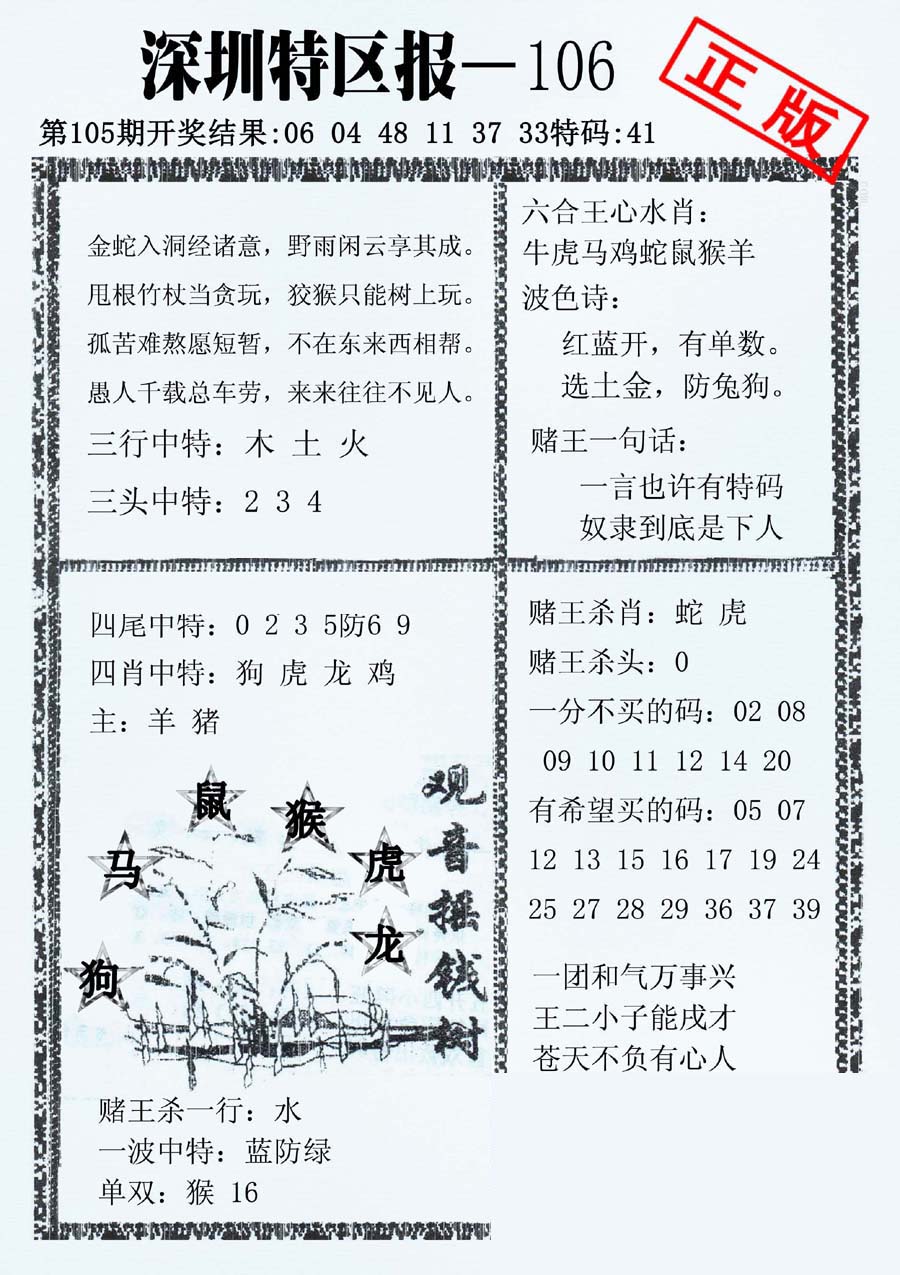 深圳特区报—106
正版
第105期开奖结果:06 04 48 11 37 33特码:41
金蛇入洞经诸意，野雨闲云享其成。
甩根竹杖当贪玩，狡猴只能树上玩。
孤苦难熬愿短暂，不在东来西相帮。
愚人千载总车劳，来来往往不见人。
三行中特：木 土 火
三头中特：2 3 4
六合王心水肖：
牛虎马鸡蛇鼠猴羊
波色诗：
红蓝开，有单数。
选土金，防兔狗。
赌王一句话：
一言也许有特码
奴隶到底是下人
四尾中特：0 2 3 5防6 9
四肖中特：狗 虎 龙 鸡
主：羊 猪
鼠
猴
马
虎
龙
狗
观音摇钱树
赌王杀一行：水
一波中特：蓝防绿
单双：猴 16
赌王杀肖：蛇 虎
赌王杀头：0
一分不买的码：02 08
09 10 11 12 14 20
有希望买的码：05 07
12 13 15 16 17 19 24
25 27 28 29 36 37 39
一团和气万事兴
王二小子能戌才
苍天不负有心人